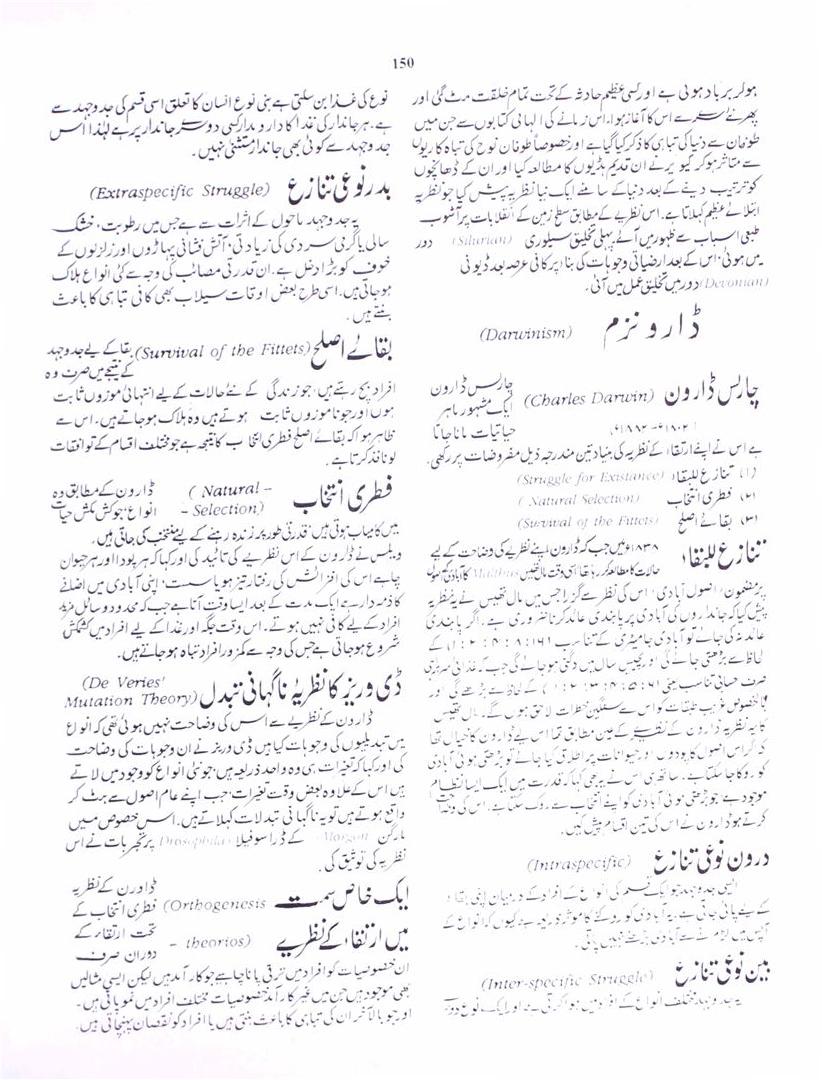 150
ہوکر برباد ہوئی ہے اور کسی عظیم حادثہ کے تحت تمام خلقت مٹ گئی اور
پھر نئے سرے سے اس کا آغاز ہوا۔ اس زمانے کی الہامی کتابوں سے جن میں
طوفان سے دنیا کی تباہی کا ذکر کیا گیا ہے اور خصوصاً طوفان نوح کی تباہ کاریوں
سے متاثر ہوکر کیویر نے ان قدیم ہڈیوں کا مطالعہ کیا اور ان کے ڈھانچوں
کو ترتیب دینے کے بعد دنیا کے سامنے ایک نیا نظریہ پیش کیا جو نظریہ
ابتلائے عظیم کہلاتا ہے۔ اس نظریے کے مطابق سطح زمین کے انقلابات پر آشوب
طبعی اسباب سے ظہور میں آئے پہلی تخلیق سیلوری (Silurian) دور
میں ہوئی، اس کے بعد ارضیاتی وجوہات کی بنا پر کافی عرصہ بعد ڈیونی
(Devonian) دور میں تخلیق عمل میں آئی۔
ڈارونزم (Darwinism)
چارلس ڈارون (Charles Darwin) چارلس ڈارون
ایک مشہور ماہر
حیاتیات مانا جاتا
ہے اس نے اپنے ارتقاء کے نظریہ کی بنیاد تین مندرجہ ذیل مفروضات پر رکھی۔
(۱) تنازع للبقاء (Struggle for Existance)
(۲) فطری انتخاب (Natural Selection)
(۳) بقائے اصلح (Survival of the Fittets)
تنازع للبقاء ۱۸۳۸ء میں جب کہ ڈارون اپنے نظریہ کی وضاحت کے لیے
حالات کا مطالعہ کر رہا تھا اسی وقت مال تھیس Malthus کا آبادی کے اصول
پر مضمون، اصول آبادی، اس کی نظر سے گزرا جس میں مال تھیس نے یہ نظریہ
پیش کیا کہ جانداروں کی آبادی پر پابندی عائد کرنا ضروری ہے۔ اگر یہ پابندی
عائد نہ کی جائے تو آبادی جامیٹری کے تناسب ۱:۲:۴:۸:۱۶ کے
لحاظ سے بڑھتی جائے گی اور پچیس سال میں دگنی ہوجائے گی جب کہ غذائی سربراہی
صرف حسابی تناسب یعنی ۱:۲:۳:۴:۵:۶ کے لحاظ سے بڑھے گی اور
بالخصوص غریب طبقات کو اس سے سنگین خطرات لاحق ہوں گے۔ مال تھیس
کا یہ نظریہ ڈارون کے نظریے کے عین مطابق تھا اس لیے ڈارون کا خیال تھا
کہ اگر اس اصول کا پودوں اور حیوانات پر اطلاق کیا جائے تو بڑھتی ہوئی آبادی
کو روکا جاسکتا ہے۔ ساتھ ہی اس نے یہ بھی کہا کہ قدرت میں ایک ایسا نظام
موجود ہے جو بڑھتی ہوئی آبادی کو اپنے انتخاب سے روک سکتا ہے۔ اس کی وضاحت
کرتے ہوئے ڈارون نے اس کی تین اقسام پیش کیں۔
درون نوعی تنازع (Intraspecific)
ایسی جدوجہد جو ایک قسم کی انواع کے افراد کے درمیان اپنی بقاء
کے لیے پائی جاتی ہے، یہ آبادی کو روکنے کا موثر ذریعہ ہے کیوں کہ انواع کے
آپس میں لڑنے سے آبادی بڑھنے نہیں پاتی۔
بین نوعی تنازع (Inter-specific Struggle)
یہ جدوجہد مختلف انواع کے افراد میں ہوا کرتی ہے اور ایک نوع دوسری
نوع کی غذا بن سکتی ہے بنی نوع انسان کا تعلق اسی قسم کی جدوجہد سے
ہے۔ ہر جاندار کی غذا کا دارومدار کسی دوسرے جاندار پر ہے لہٰذا اس
جدوجہد سے کوئی بھی جاندار مستثنیٰ نہیں۔
بدر نوعی تنازع (Extraspecific Struggle)
یہ جدوجہد ماحول کے اثرات سے ہے جس میں رطوبت، خشک
سالی یا گرمی سردی کی زیادتی، آتش فشانی پہاڑوں اور زلزلوں کے
خوف کو بڑا دخل ہے۔ ان قدرتی مصائب کی وجہ سے کئی انواع ہلاک
ہوجاتی ہیں۔ اسی طرح بعض اوقات سیلاب بھی کافی تباہی کا باعث
بنتے ہیں۔
بقائے اصلح (Survival of the Fittets) بقا کے لیے جدوجہد
کے نتیجے میں صرف وہ
افراد بچ رہتے ہیں، جو زندگی کے نئے حالات کے لیے انتہائی موزوں ثابت
ہوں اور جو ناموزوں ثابت ہوتے ہیں وہ ہلاک ہوجاتے ہیں۔ اس سے
ظاہر ہوا کہ بقائے اصلح فطری انتخاب کا نتیجہ ہے جو مختلف اقسام کے توافقات
کو نافذ کرتا ہے۔
فطری انتخاب ( Natural – ڈارون کے مطابق وہ
– Selection) انواع، جو کشمکش حیات
میں کامیاب ہوتی ہیں، قدرتی طور پر زندہ رہنے کے لیے منتخب کی جاتی ہیں۔
ویلس نے ڈارون کے اس نظریے کی تائید کی اور کہا کہ ہر پودا اور ہر حیوان
چاہے اس کی افزائش کی رفتار تیز ہو یا سست، اپنی آبادی میں اضافے
کا ذمہ دار ہے ایک مدت کے بعد ایسا وقت آتا ہے جب کہ محدود وسائل مزید
افراد کے لیے کافی نہیں ہوتے۔ اس وقت جگہ اور غذا کے لیے افراد میں کشمکش
شروع ہوجاتی ہے جس کی وجہ سے کمزور افراد تباہ ہوجاتے ہیں۔
ڈی وریز کا نظریہ ناگہانی تبدل (De Veries'
Mutation Theory)
ڈارون کے نظریے سے اس کی وضاحت نہیں ہوئی تھی کہ انواع
میں تبدیلیوں کی وجوہات کیا ہیں ڈی وریز نے ان وجوہات کی وضاحت
کی اور کہا کہ تغیرات ہی وہ واحد ذریعہ ہیں، جو نئی انواع کو وجود میں لاتے
ہیں اس کے علاوہ بعض وقت تغیرات، جب اپنے عام اصول سے ہٹ کر
واقع ہوتے ہیں تو یہ ناگہانی تبدلات کہلاتے ہیں۔ اس خصوص میں
مارگن (Morgan) کے ڈراسوفیلا (Drosophila) پر تجربات نے اس
نظریہ کی توثیق کی۔
ایک خاص سمت (Orthogenesis ڈاورن کے نظریہ
فطری انتخاب کے
میں ارتقاء کے نظریے – theorios) تحت ارتقاء کے
دوران صرف
ان خصوصیات کو افراد میں ترقی پانا چاہیے جو کار آمد ہیں لیکن ایسی مثالیں
بھی موجود ہیں جن میں غیر کار آمد خصوصیات مختلف افراد میں نمو پاتی ہیں۔
اور جو بالآخر ان کی تباہی کا باعث بنتی ہیں یا افراد کو نقصان پہنچاتی ہیں۔